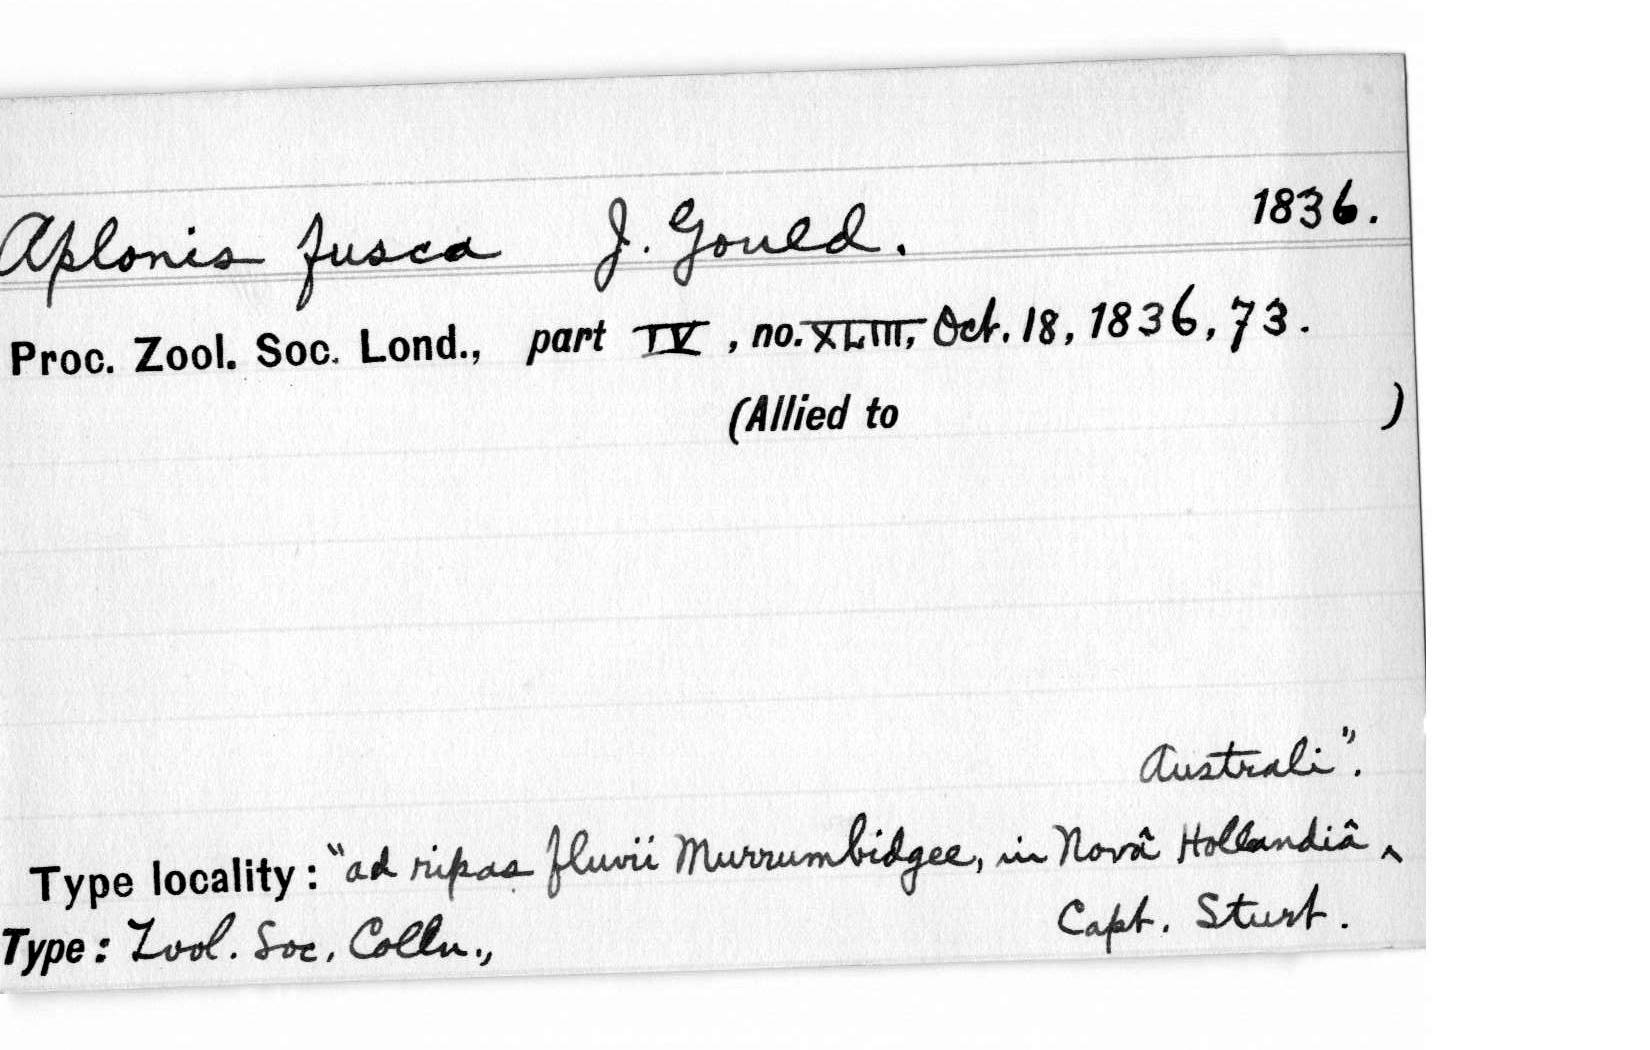 Aplonis fusca J. Gould. 1836.
Proc. Zool. Soc. Lond., part IV, no. XLIII, Oct. 18, 1836, 73.
(Allied to )
Australi”.
Type locality: “ad ripas fluvii Murrumbidgee, in Novâ Hollandiâ ^
Type: Zool. Soc. Colln., Capt. Sturt.